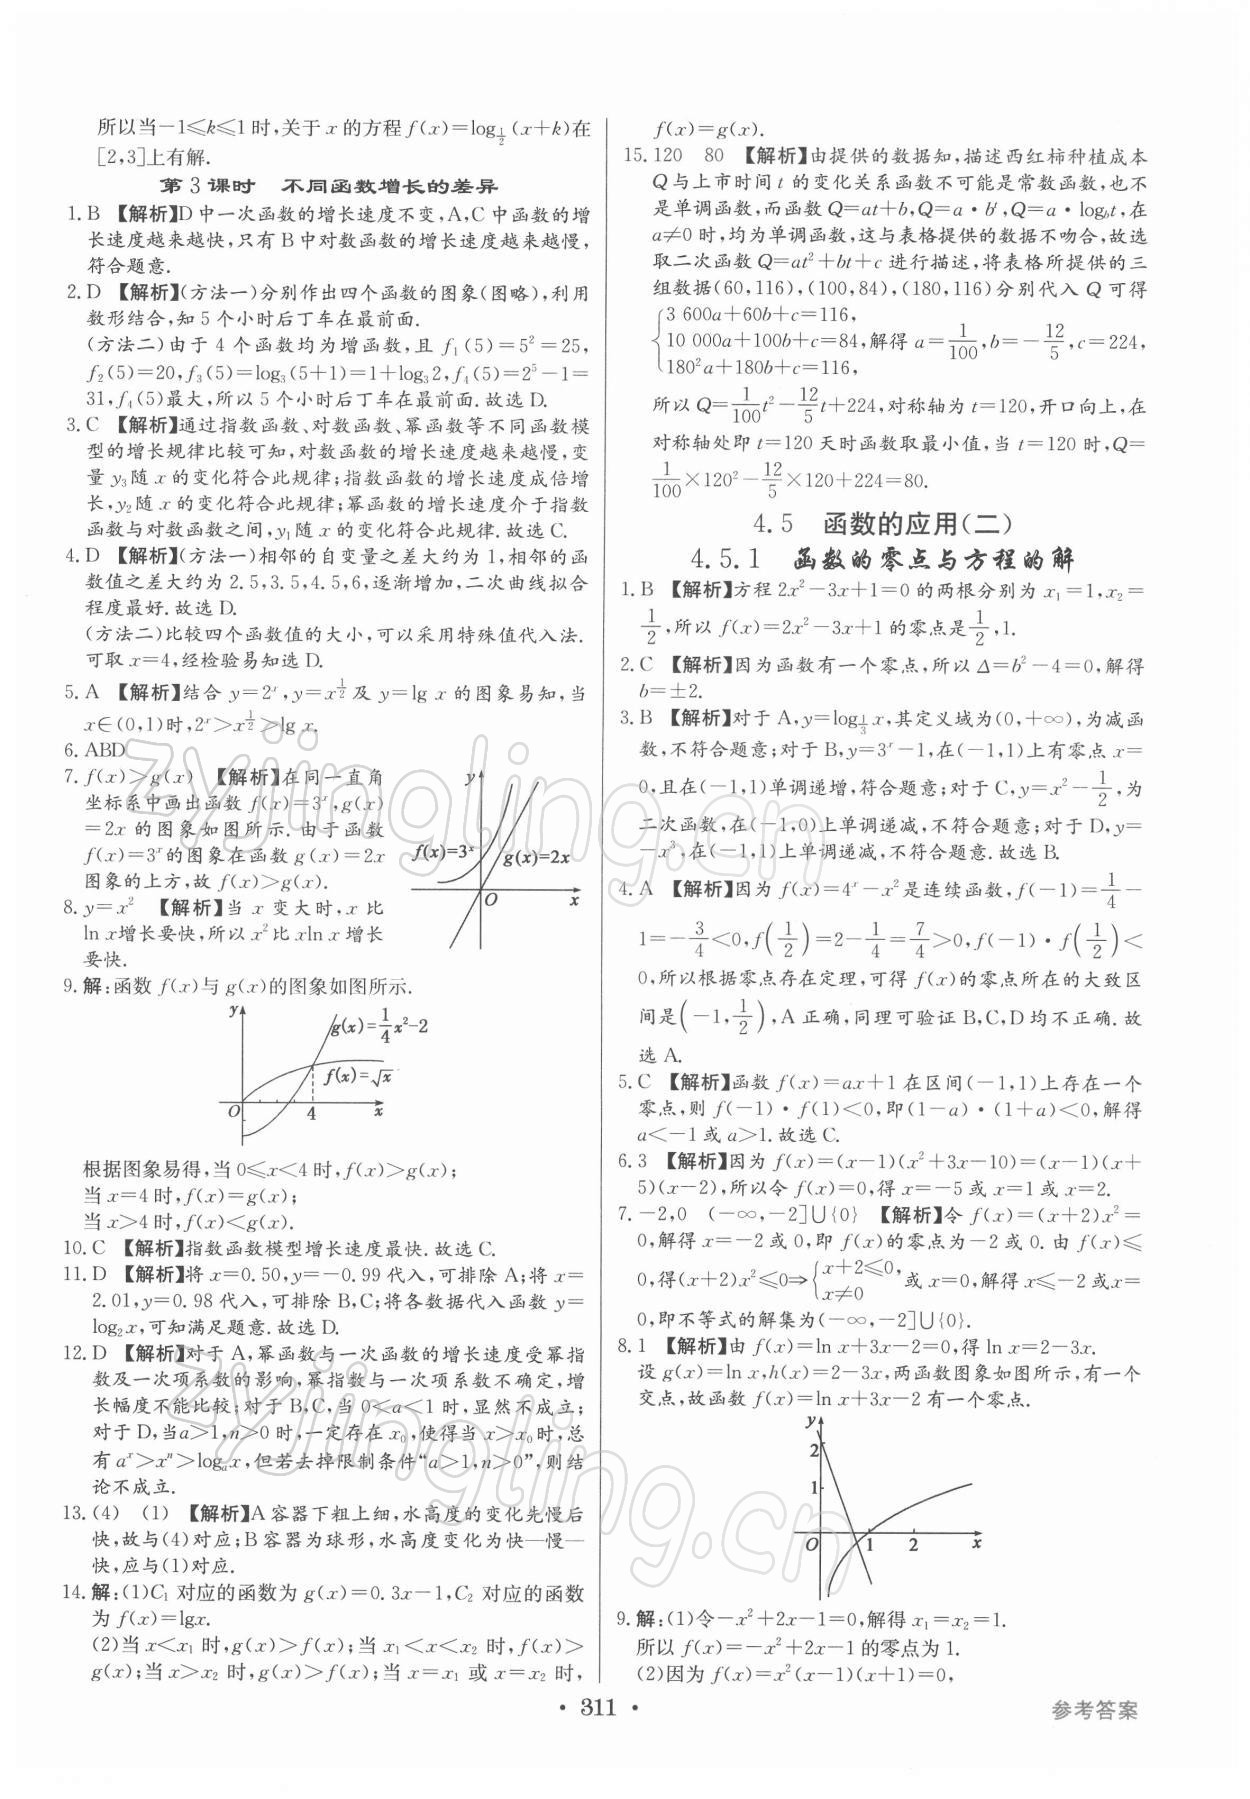 所以当-1≤k≤1时,关于x的方程f(x)=log_{1/2}(x+k)在
[2,3]上有解.
第3课时 不同函数增长的差异
1.B 【解析】D中一次函数的增长速度不变,A,C中函数的增
长速度越来越快,只有B中对数函数的增长速度越来越慢,
符合题意.
2.D 【解析】(方法一)分别作出四个函数的图象(图略),利用
数形结合,知5个小时后丁车在最前面.
(方法二)由于4个函数均为增函数,且f₁(5)=5²=25,
f₂(5)=20,f₃(5)=log₃(5+1)=1+log₃2,f₄(5)=2⁵-1=
31,f₄(5)最大,所以5个小时后丁车在最前面.故选D.
3.C 【解析】通过指数函数、对数函数、幂函数等不同函数模
型的增长规律比较可知,对数函数的增长速度越来越慢,变
量y₃随x的变化符合此规律;指数函数的增长速度成倍增
长,y₂随x的变化符合此规律;幂函数的增长速度介于指数
函数与对数函数之间,y₁随x的变化符合此规律.故选C.
4.D 【解析】(方法一)相邻的自变量之差大约为1,相邻的函
数值之差大约为2.5,3.5,4.5,6,逐渐增加,二次曲线拟合
程度最好.故选D.
(方法二)比较四个函数值的大小,可以采用特殊值代入法.
可取x=4,经检验易知选D.
5.A 【解析】结合y=2ˣ,y=x^{1/2}及y=lg x的图象易知,当
x∈(0,1)时,2ˣ>x^{1/2}>lg x.
6.ABD
7.f(x)>g(x) 【解析】在同一直角
坐标系中画出函数f(x)=3ˣ,g(x)
=2x的图象如图所示.由于函数
f(x)=3ˣ的图象在函数g(x)=2x
图象的上方,故f(x)>g(x).
y
f(x)=3ˣ
g(x)=2x
O
x
8.y=x² 【解析】当x变大时,x比
ln x增长要快,所以x²比xln x增长
要快.
9.解:函数f(x)与g(x)的图象如图所示.
y
g(x)=1/4x²-2
f(x)=√x
O
4
x
根据图象易得,当0≤x<4时,f(x)>g(x);
当x=4时,f(x)=g(x);
当x>4时,f(x)<g(x).
10.C 【解析】指数函数模型增长速度最快.故选C.
11.D 【解析】将x=0.50,y=-0.99代入,可排除A;将x=
2.01,y=0.98代入,可排除B,C;将各数据代入函数y=
log₂x,可知满足题意.故选D.
12.D 【解析】对于A,幂函数与一次函数的增长速度受幂指
数及一次项系数的影响,幂指数与一次项系数不确定,增
长幅度不能比较;对于B,C,当0<a<1时,显然不成立;
对于D,当a>1,n>0时,一定存在x₀,使得当x>x₀时,总
有aˣ>xⁿ>logₐx,但若去掉限制条件“a>1,n>0”,则结
论不成立.
13.(4) (1) 【解析】A容器下粗上细,水高度的变化先慢后
快,故与(4)对应;B容器为球形,水高度变化为快—慢—
快,应与(1)对应.
14.解:(1)C₁对应的函数为g(x)=0.3x-1,C₂对应的函数
为f(x)=lgx.
(2)当x<x₁时,g(x)>f(x);当x₁<x<x₂时,f(x)>
g(x);当x>x₂时,g(x)>f(x);当x=x₁或x=x₂时,
f(x)=g(x).
15.120 80 【解析】由提供的数据知,描述西红柿种植成本
Q与上市时间t的变化关系函数不可能是常数函数,也不
是单调函数,而函数Q=at+b,Q=a·bᵗ,Q=a·log_b t,在
a≠0时,均为单调函数,这与表格提供的数据不吻合,故选
取二次函数Q=at²+bt+c进行描述,将表格所提供的三
组数据(60,116),(100,84),(180,116)分别代入Q可得
3 600a+60b+c=116,
10 000a+100b+c=84,解得a=1/100,b=-12/5,c=224,
180²a+180b+c=116,
所以Q=1/100t²-12/5t+224,对称轴为t=120,开口向上,在
对称轴处即t=120天时函数取最小值,当t=120时,Q=
1/100×120²-12/5×120+224=80.
4.5 函数的应用(二)
4.5.1 函数的零点与方程的解
1.B 【解析】方程2x²-3x+1=0的两根分别为x₁=1,x₂=
1/2,所以f(x)=2x²-3x+1的零点是1/2,1.
2.C 【解析】因为函数有一个零点,所以Δ=b²-4=0,解得
b=±2.
3.B 【解析】对于A,y=log_{1/3}x,其定义域为(0,+∞),为减函
数,不符合题意;对于B,y=3ˣ-1,在(-1,1)上有零点x=
0,且在(-1,1)上单调递增,符合题意;对于C,y=x²-1/2,为
二次函数,在(-1,0)上单调递减,不符合题意;对于D,y=
-x³,在(-1,1)上单调递减,不符合题意.故选B.
4.A 【解析】因为f(x)=4ˣ-x²是连续函数,f(-1)=1/4-
1=-3/4<0,f(1/2)=2-1/4=7/4>0,f(-1)·f(1/2)<
0,所以根据零点存在定理,可得f(x)的零点所在的大致区
间是(-1,1/2),A正确,同理可验证B,C,D均不正确.故
选A.
5.C 【解析】函数f(x)=ax+1在区间(-1,1)上存在一个
零点,则f(-1)·f(1)<0,即(1-a)·(1+a)<0,解得
a<-1或a>1.故选C.
6.3 【解析】因为f(x)=(x-1)(x²+3x-10)=(x-1)(x+
5)(x-2),所以令f(x)=0,得x=-5或x=1或x=2.
7.-2,0 (-∞,-2]∪{0} 【解析】令f(x)=(x+2)x²=
0,解得x=-2或0,即f(x)的零点为-2或0.由f(x)≤
0,得(x+2)x²≤0⇒{x+2≤0, x≠0 或x=0,解得x≤-2或x=
0,即不等式的解集为(-∞,-2]∪{0}.
8.1 【解析】由f(x)=ln x+3x-2=0,得ln x=2-3x.
设g(x)=ln x,h(x)=2-3x,两函数图象如图所示,有一个
交点,故函数f(x)=ln x+3x-2有一个零点.
y
2
1
O
1
2
x
9.解:(1)令-x²+2x-1=0,解得x₁=x₂=1.
所以f(x)=-x²+2x-1的零点为1.
(2)因为f(x)=x²(x-1)(x+1)=0,
· 311 ·
参考答案
zyjingling.cn
zyjingling.cn